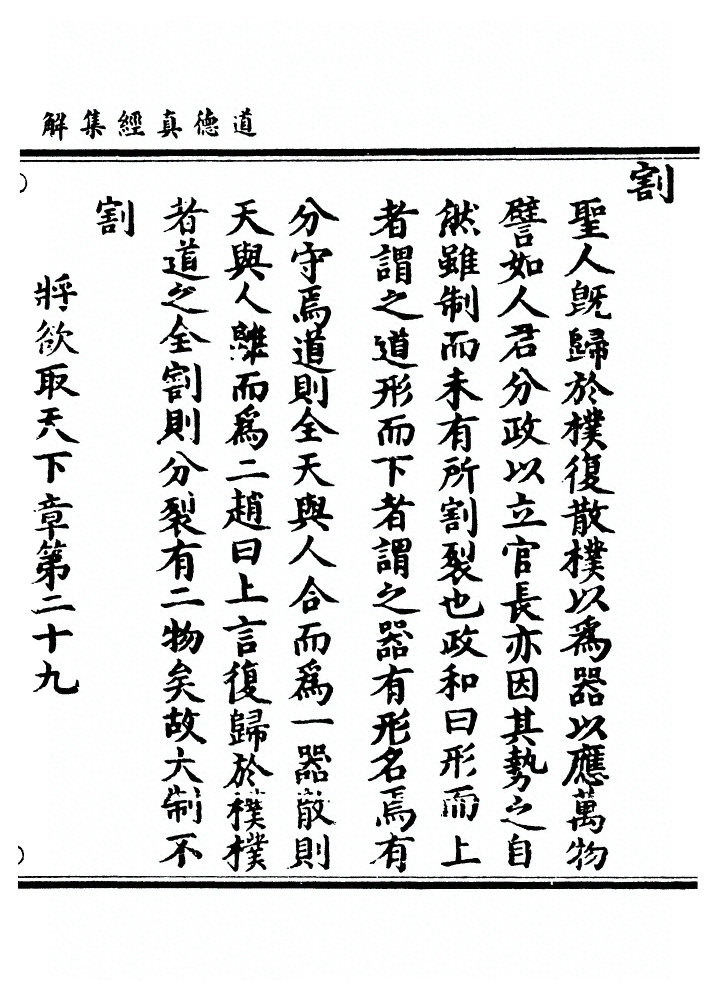 道德真經集解
割
聖人旣歸於樸復散樸以爲器以應萬物
譬如人君分政以立官長亦因其勢之自
然雖制而未有所割裂也政和曰形而上
者謂之道形而下者謂之器有形名焉有
分守焉道則全天與人合而爲一器散則
天與人離而爲二趙曰上言復歸於樸樸
者道之全割則分裂有二物矣故大制不
割
將欲取天下章第二十九